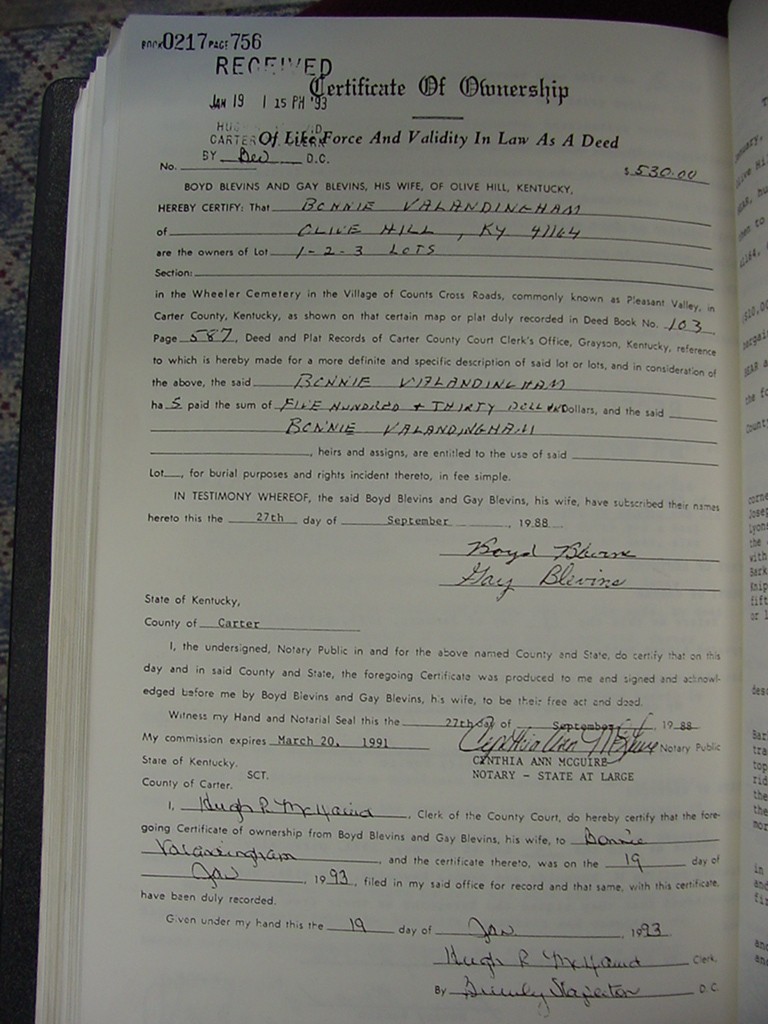 BOOK 0217 PAGE 756
RECEIVED
Certificate Of Ownership
JAN 19 1 25 PM '93
Of Like Force And Validity In Law As A Deed
CARTER CLERK
BY Bev D.C.
No. $530.00
BOYD BLEVINS AND GAY BLEVINS, HIS WIFE, OF OLIVE HILL, KENTUCKY,
HEREBY CERTIFY: That BONNIE VALANDINGHAM
of OLIVE HILL, KY 41164
are the owners of Lot 1-2-3 LOTS
Section:
in the Wheeler Cemetery in the Village of Counts Cross Roads, commonly known as Pleasant Valley, in
Carter County, Kentucky, as shown on that certain map or plat duly recorded in Deed Book No. 103,
Page 587, Deed and Plat Records of Carter County Court Clerk's Office, Grayson, Kentucky, reference
to which is hereby made for a more definite and specific description of said lot or lots, and in consideration of
the above, the said BONNIE VALANDINGHAM
ha S paid the sum of FIVE HUNDRED + THIRTY DOLLARS Dollars, and the said
BONNIE VALANDINGHAM
, heirs and assigns, are entitled to the use of said
Lot , for burial purposes and rights incident thereto, in fee simple.
IN TESTIMONY WHEREOF, the said Boyd Blevins and Gay Blevins, his wife, have subscribed their names
hereto this the 27th day of September , 19 88
Boyd Blevins
Gay Blevins
State of Kentucky,
County of Carter
I, the undersigned, Notary Public in and for the above named County and State, do certify that on this
day and in said County and State, the foregoing Certificate was produced to me and signed and acknowl-
edged before me by Boyd Blevins and Gay Blevins, his wife, to be their free act and deed.
Witness my Hand and Notarial Seal this the 27th day of September , 19 88
My commission expires March 20, 1991 Cynthia Ann McGuire Notary Public
CYNTHIA ANN MCGUIRE
State of Kentucky. NOTARY - STATE AT LARGE
SCT.
County of Carter.
I, Hugh R. McHaird , Clerk of the County Court, do hereby certify that the fore-
going Certificate of ownership from Boyd Blevins and Gay Blevins, his wife, to Bonnie
Valandingham , and the certificate thereto, was on the 19 day of
Jan , 19 93, filed in my said office for record and that same, with this certificate,
have been duly recorded.
Given under my hand this the 19 day of Jan , 19 93
Hugh R McHaird Clerk.
By Stapleton D.C.